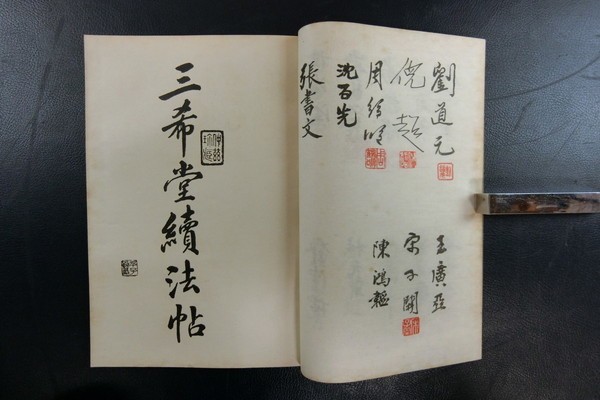 劉道元
倪超
周紹明
沈百先
張書文
王廣亞
宋子開
陳鴻韜
三希堂續法帖